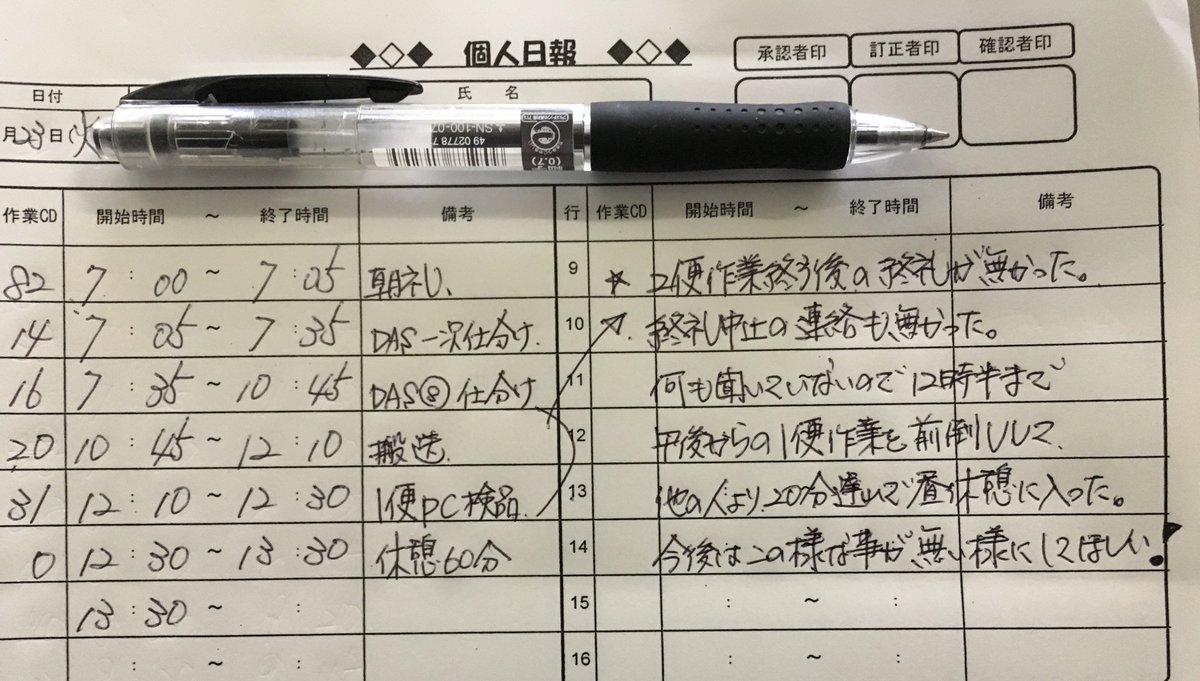 ◆◇◆ 個人日報 ◆◇◆
承認者印 訂正者印 確認者印
日付 氏 名
月23日(火
SN-100-07
49 02778 7
(0.7)
作業CD 開始時間 ～ 終了時間 備考 行 作業CD 開始時間 ～ 終了時間 備考
82 7 : 00 ～ 7 : 05 朝礼、 9 ☆ 2便作業終了後の終礼が無かった。
14 7 : 05 ～ 7 : 35 DAS一次仕分け. 10 終礼中止の連絡も無かった。
16 7 : 35 ～ 10 : 45 DAS⑧仕分け 11 何も聞いていないので12時半まで
20 10 : 45 ～ 12 : 10 搬送. 12 午後からの1便作業を前倒しして、
31 12 : 10 ～ 12 : 30 1便PC検品. 13 他の人より20分遅いで昼休憩に入った。
0 12 : 30 ～ 13 : 30 休憩60分 14 今後はこの様な事が無い様にしてほしい!
13 : 30 ～ : 15 : ～ :
: ～ : 16 : ～ :